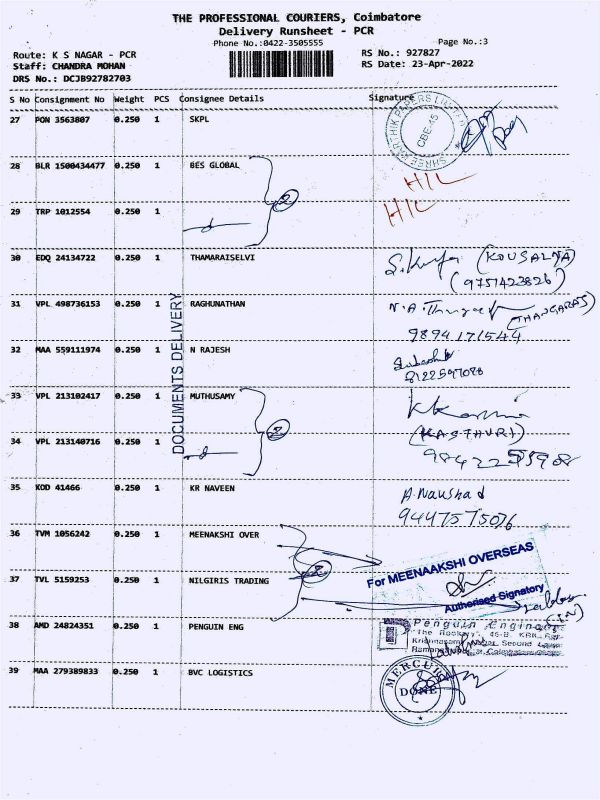 THE PROFESSIONAL COURIERS, Coimbatore
Delivery Runsheet - PCR
Phone No.:0422-3505555
Page No.:3
Route: K S NAGAR - PCR
RS No.: 927827
Staff: CHANDRA MOHAN
RS Date: 23-Apr-2022
DRS No.: DCJB92782703
S No Consignment No Weight PCS Consignee Details Signature
27 PON 3563807 0.250 1 SKPL
SHREE KARTHIK PAPERS LIMITED
CBE-45
28 BLR 1500434477 0.250 1 BES GLOBAL
2
H/L
29 TRP 1012554 0.250 1
H/L
30 EDQ 24134722 0.250 1 THAMARAISELVI
(KOUSALYA)
(9751423826)
31 VPL 498736153 0.250 1 RAGHUNATHAN
(THANGARAJ)
9894171544
32 MAA 559111974 0.250 1 N RAJESH
8122597098
DOCUMENTS DELIVERY
33 VPL 213102417 0.250 1 MUTHUSAMY
2
(KASTHURI)
34 VPL 213140716 0.250 1
35 KOD 41466 0.250 1 KR NAVEEN
A. Naushad
9447575076
36 TVM 1056242 0.250 1 MEENAKSHI OVER
2
For MEENAAKSHI OVERSEAS
Authorised Signatory
37 TVL 5159253 0.250 1 NILGIRIS TRADING
38 AMD 24824351 0.250 1 PENGUIN ENG
Penguin Engine
"The Rookery", 46-B, KRK
Second
39 MAA 279389833 0.250 1 BVC LOGISTICS
MERCUR
DONE